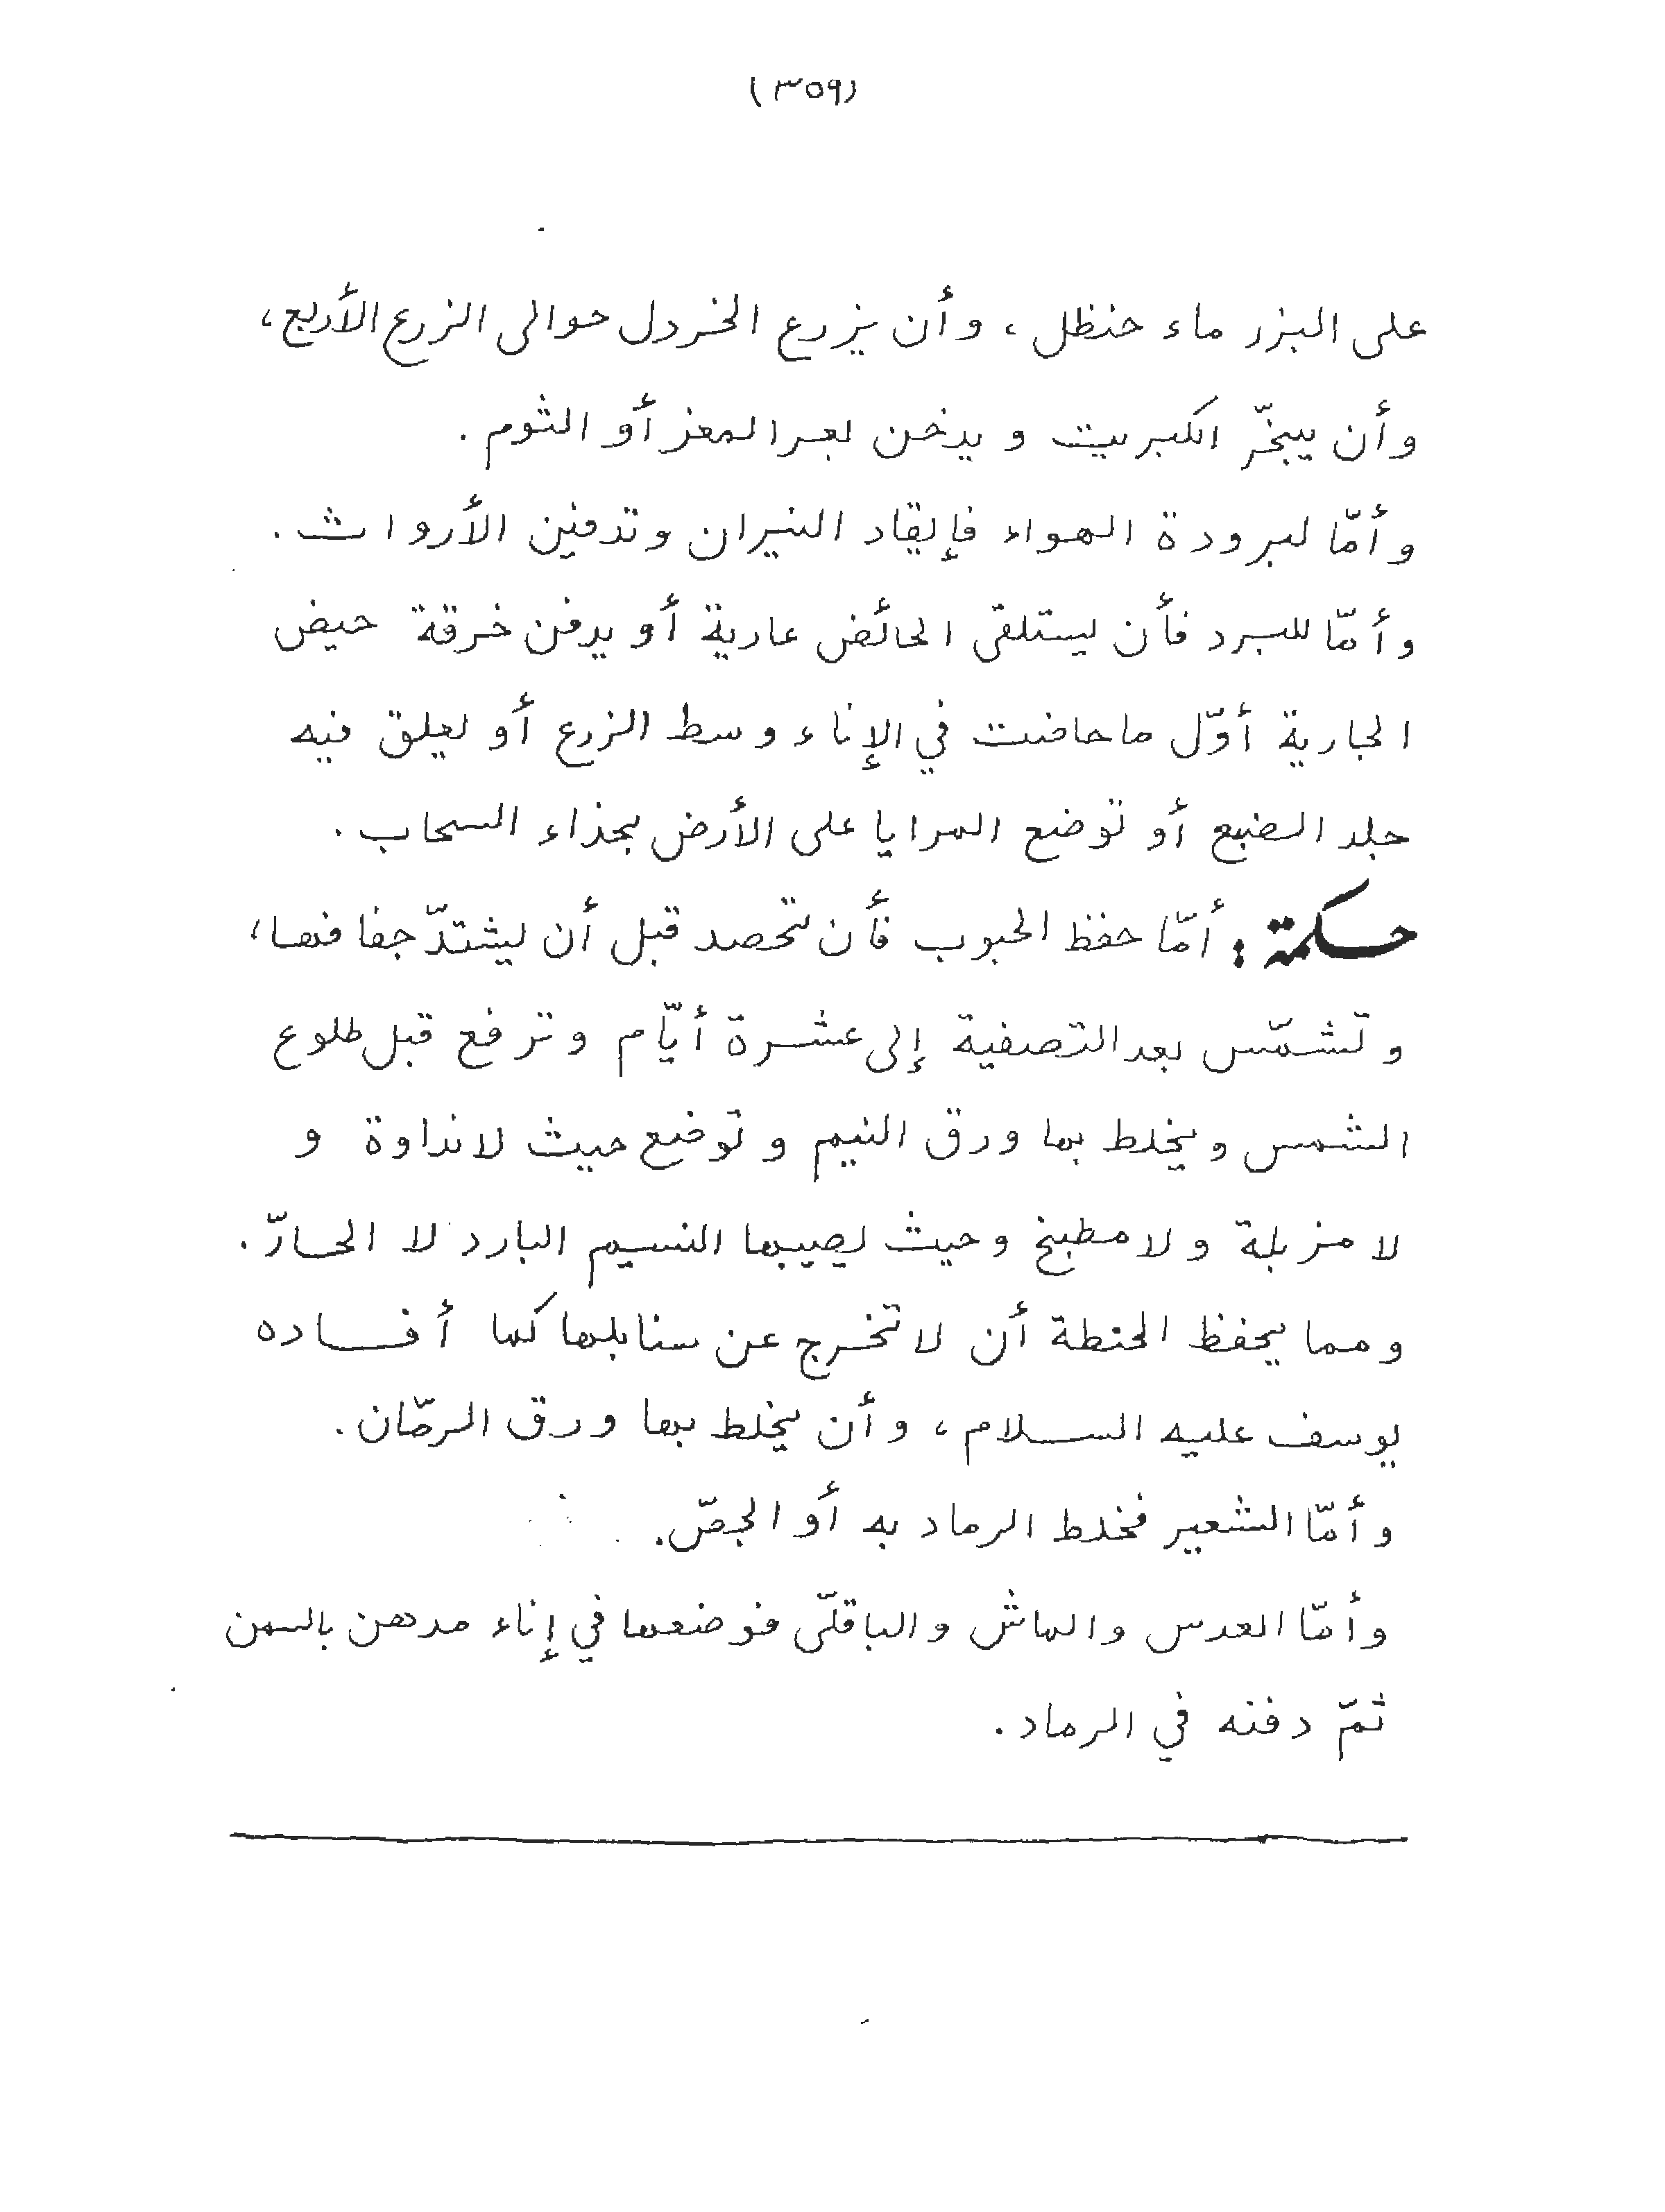 (٣٥٩)
على البزر ماء حنظل ، وأن يزرع الخردل حوالى الزرع الأربع ،
وأن يبخّر الكبريت و يدخن بعر المعز أو الثوم .
وأمّا لبرودة الهواء فإيقاد النيران وتدفين الأرواث .
وأمّا للبرد فأن يستلقى الحائض عارية أو يدفن خرقة حيض
الجارية أوّل ما حاضت في الإناء وسط الزرع أو يعلق فيه
جلد الضبع أو توضع المرايا على الأرض بحذاء السحاب .
حكمة : أمّا حفظ الحبوب فأن تحصد قبل أن يشتدّ جفافها ،
وتشمّس بعد التصفية إلى عشرة أيّام وترفع قبل طلوع
الشمس ويخلط بها ورق النيم و توضع حيث لا نداوة و
لا مزبلة ولا مطبخ وحيث يصيبها النسيم البارد لا الحارّ .
ومما يحفظ الحنطة أن لا تخرج عن سنابلها كما أفاده
يوسف عليه السلام ، وأن يخلط بها ورق الرمّان .
وأمّا الشعير فخلط الرماد به أو الجصّ .
وأمّا العدس والماش والباقلّى فوضعها في إناء مدهن بالسمن
ثمّ دفنه في الرماد .